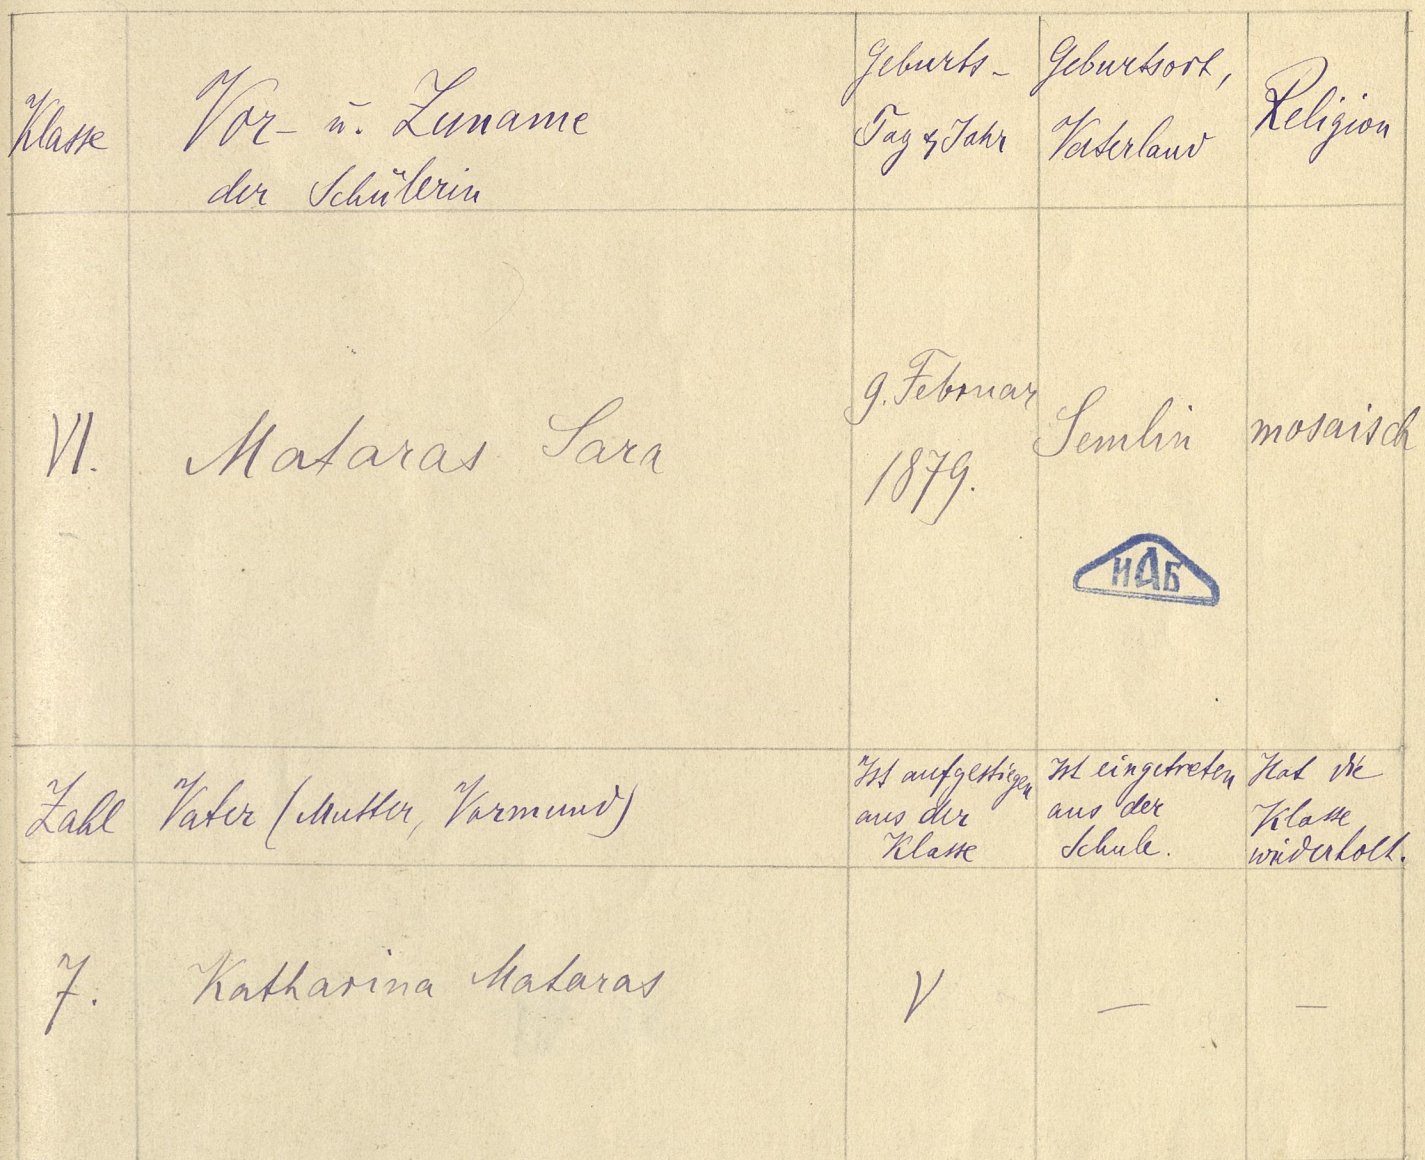 Klasse
Vor- u. Zuname
der Schülerin
Geburts-
Tag & Jahr
Geburtsort,
Vaterland
Religion
VI.
Mataras Sara
9. Februar
1879.
Semlin
mosaisch
ИАБ
Zahl
Vater (Mutter, Vormund)
Ist aufgestiegen
aus der
Klasse
Ist eingetreten
aus der
Schule.
Hat die
Klasse
wiederholt.
7.
Katharina Mataras
V
—
—